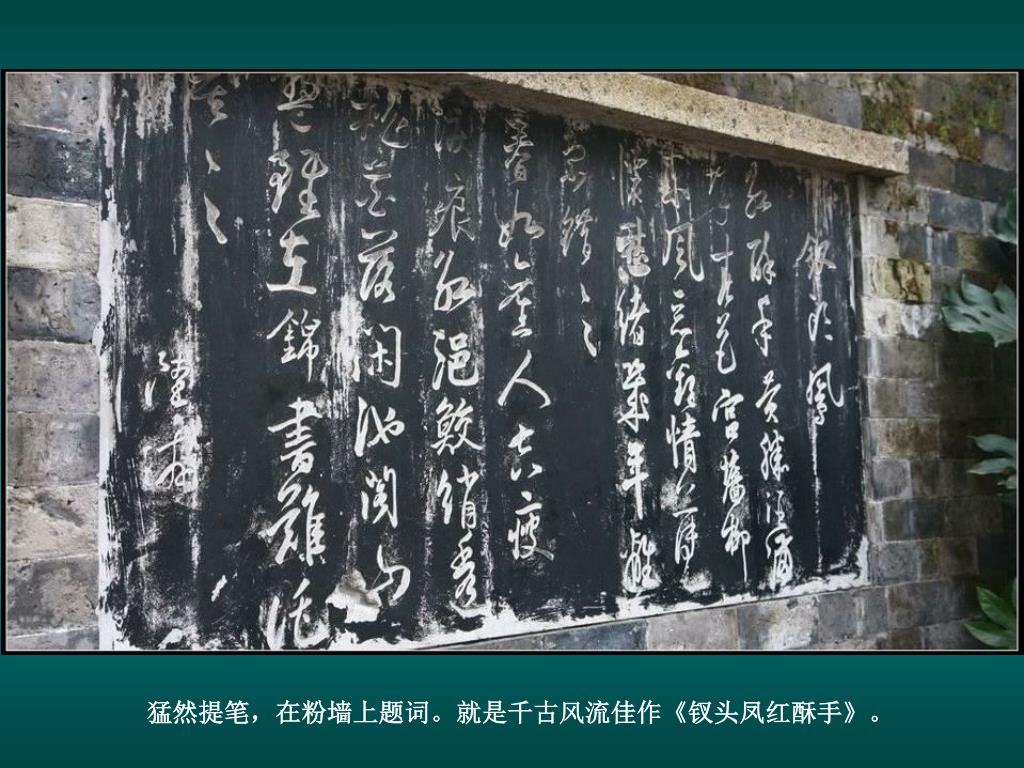 釵頭鳳
紅酥手黃縢酒滿
城春色宮牆柳
東風惡歡情薄
懷愁緒幾年離
索錯々々
春如舊人空瘦
淚痕紅浥鮫綃透
桃花落閑池閣山
盟雖在錦書難託
莫々々
陸游
猛然提笔，在粉墙上题词。就是千古风流佳作《钗头凤红酥手》。